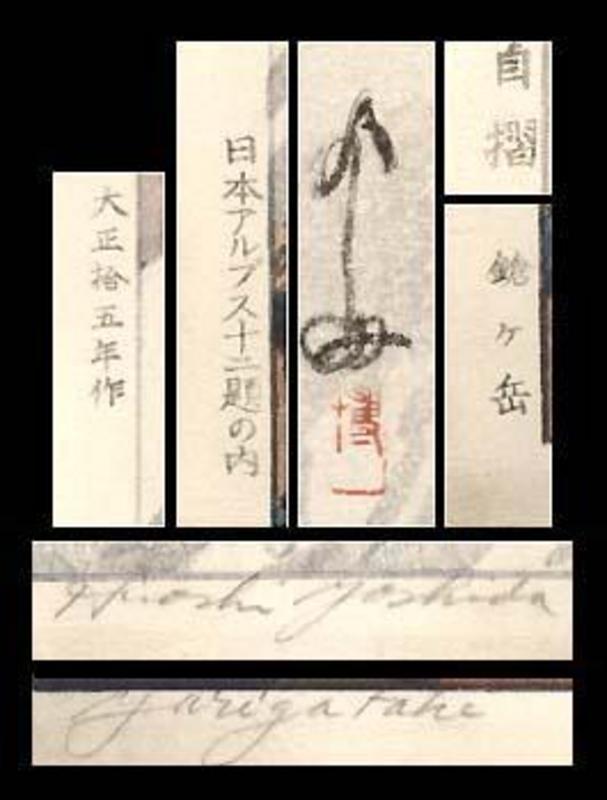 自摺
鎗ヶ岳
博
日本アルプス十二題の内
大正拾五年作
Hiroshi Yoshida
Yarigatake